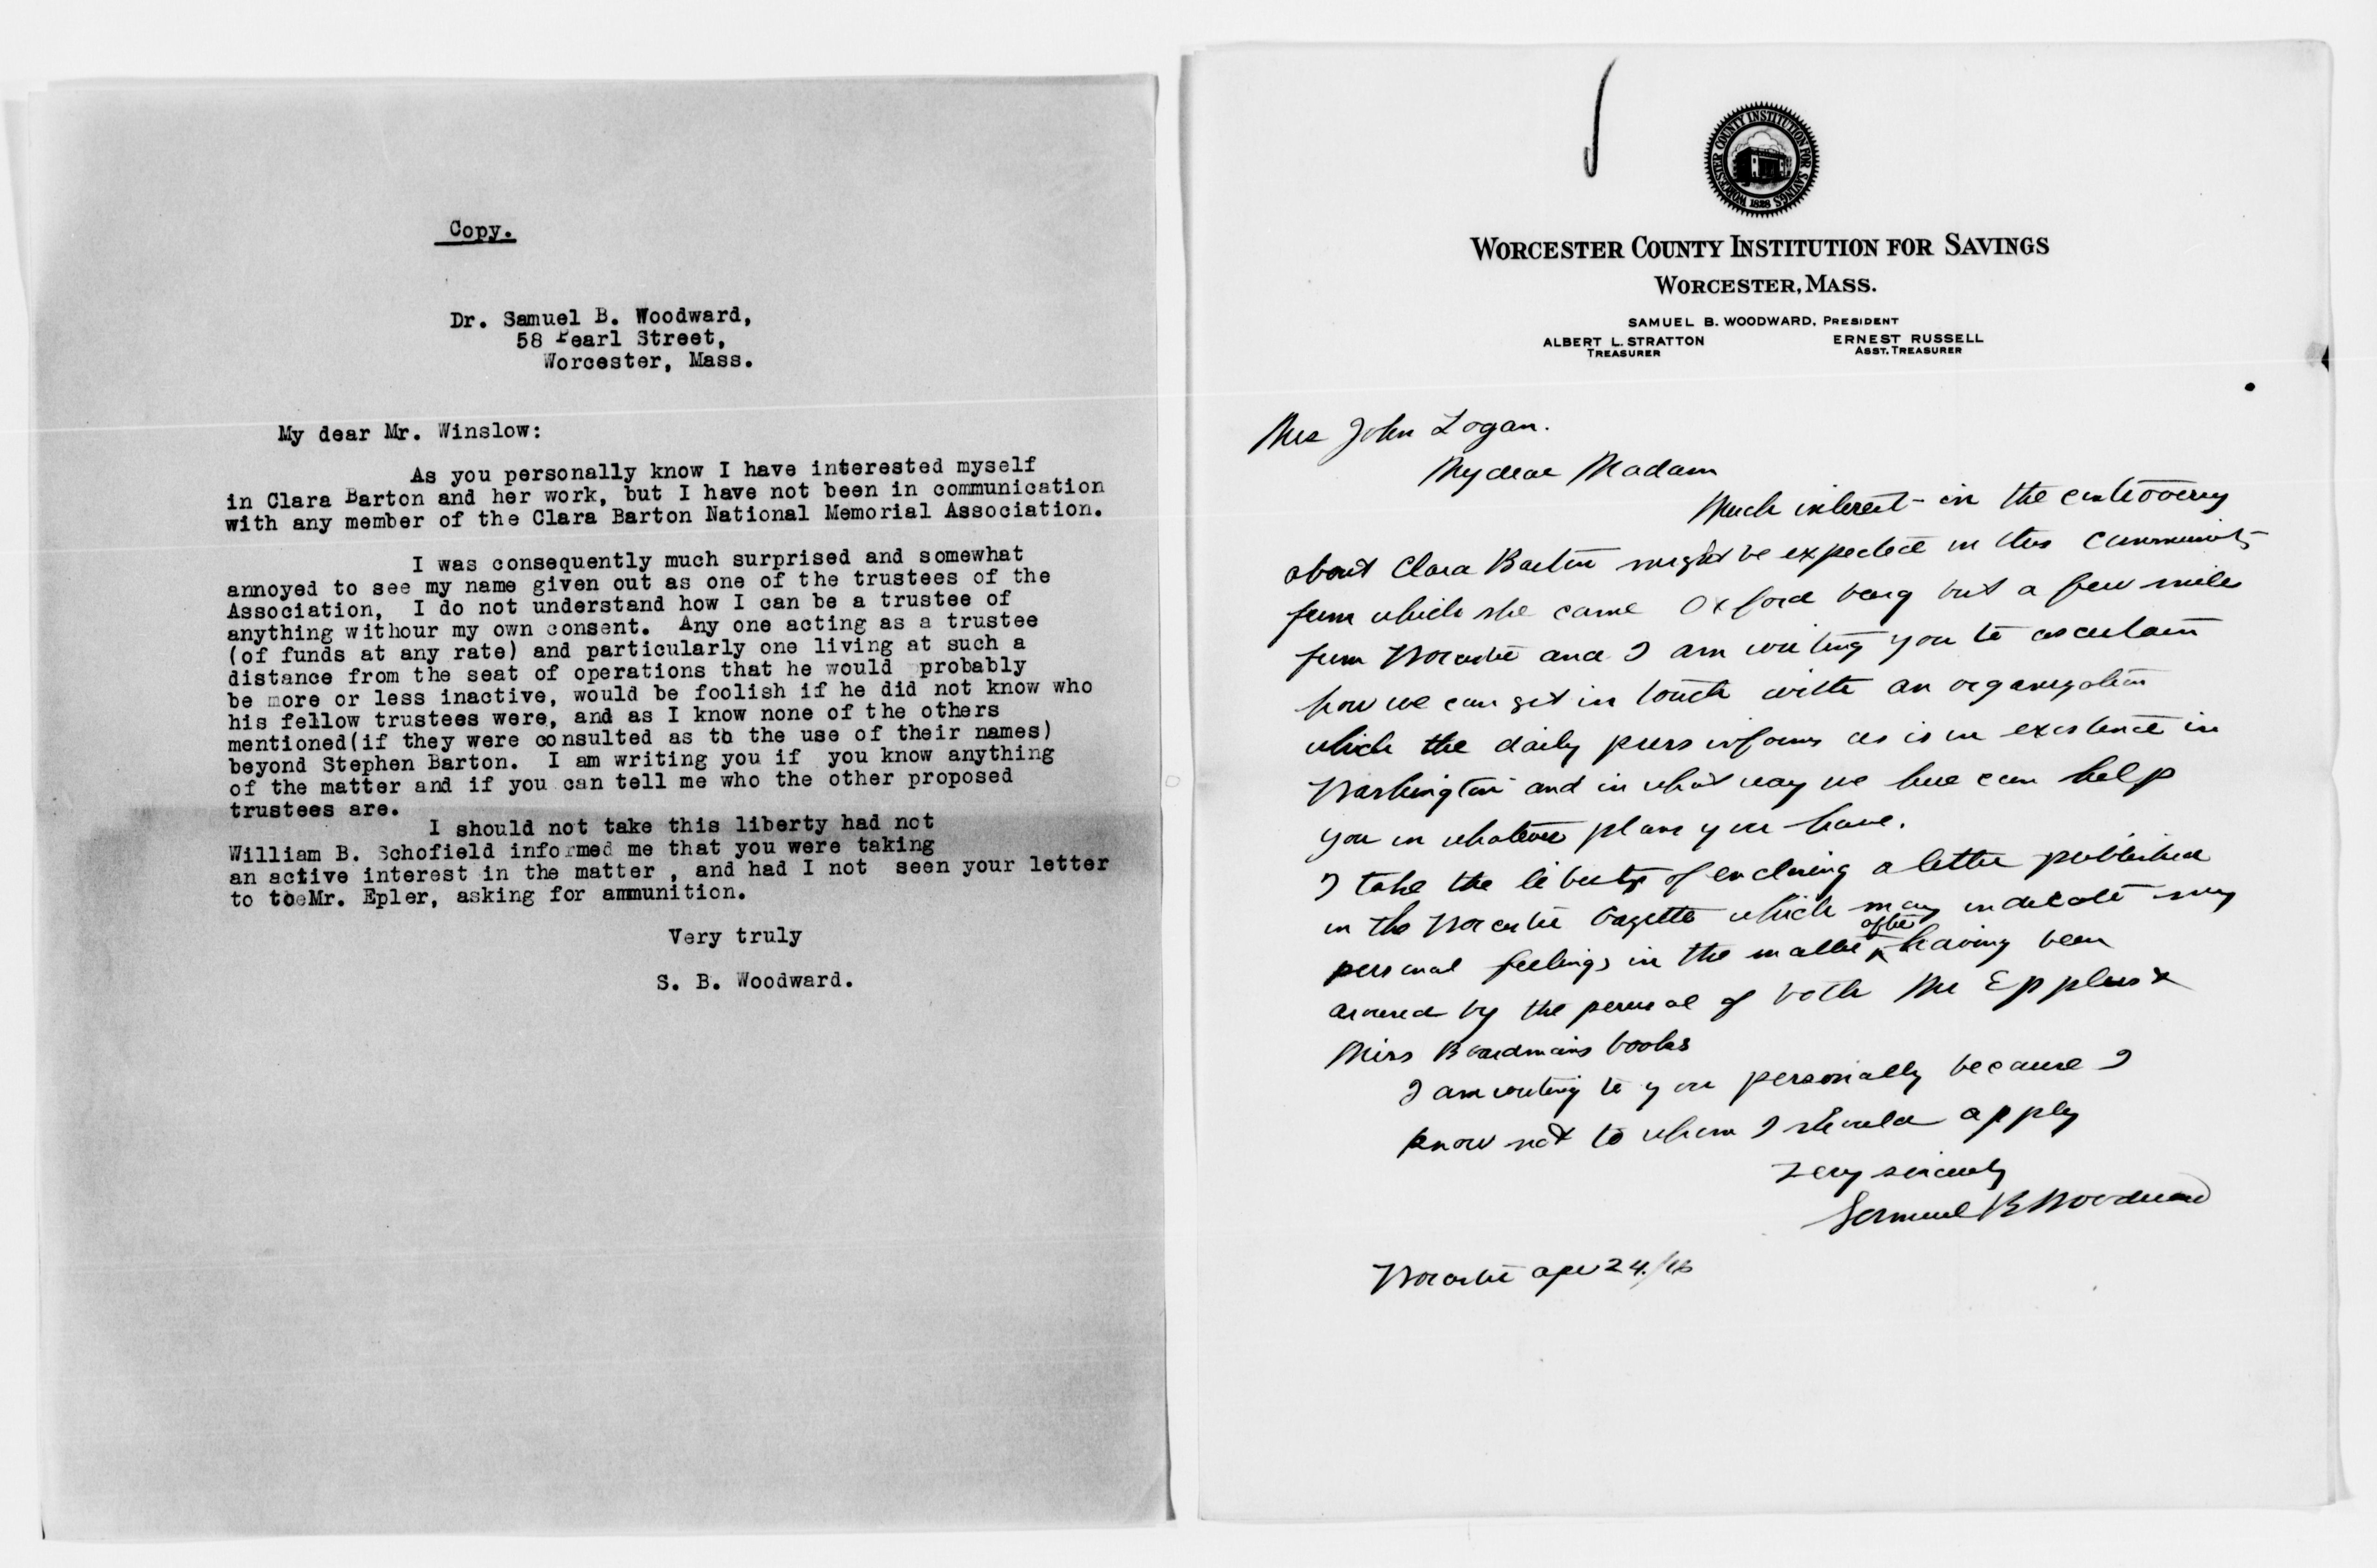 Copy.
Dr. Samuel B. Woodward,
58 Pearl Street,
Worcester, Mass.
My dear Mr. Winslow:
As you personally know I have interested myself
in Clara Barton and her work, but I have not been in communication
with any member of the Clara Barton National Memorial Association.
I was consequently much surprised and somewhat
annoyed to see my name given out as one of the trustees of the
Association, I do not understand how I can be a trustee of
anything withour my own consent. Any one acting as a trustee
(of funds at any rate) and particularly one living at such a
distance from the seat of operations that he would probably
be more or less inactive, would be foolish if he did not know who
his fellow trustees were, and as I know none of the others
mentioned(if they were consulted as to the use of their names)
beyond Stephen Barton. I am writing you if you know anything
of the matter and if you can tell me who the other proposed
trustees are.
I should not take this liberty had not
William B. Schofield informed me that you were taking
an active interest in the matter , and had I not seen your letter
to Mr. Epler, asking for ammunition.
Very truly
S. B. Woodward.
WORCESTER COUNTY INSTITUTION FOR SAVINGS
1828
WORCESTER COUNTY INSTITUTION FOR SAVINGS
WORCESTER, MASS.
SAMUEL B. WOODWARD, PRESIDENT
ALBERT L. STRATTON ERNEST RUSSELL
TREASURER ASST. TREASURER
Mrs John Logan.
My dear Madam
Much interest in the controversy
about Clara Barton might be expected in this community
from which she came Oxford being but a few miles
from Worcester and I am writing you to ascertain
how we can get in touch with an organization
which the daily press informs us is in existence in
Washington and in what way we here can help
you in whatever plans you have.
I take the liberty of enclosing a letter published
in the Worcester Gazette which may indicate my
personal feelings in the matter after having been
aroused by the perusal of both Mr Epplers &
Miss Boardmans books
I am writing to you personally because I
know not to whom I should apply
Very sincerely
Samuel B Woodward
Worcester Apr 24/16